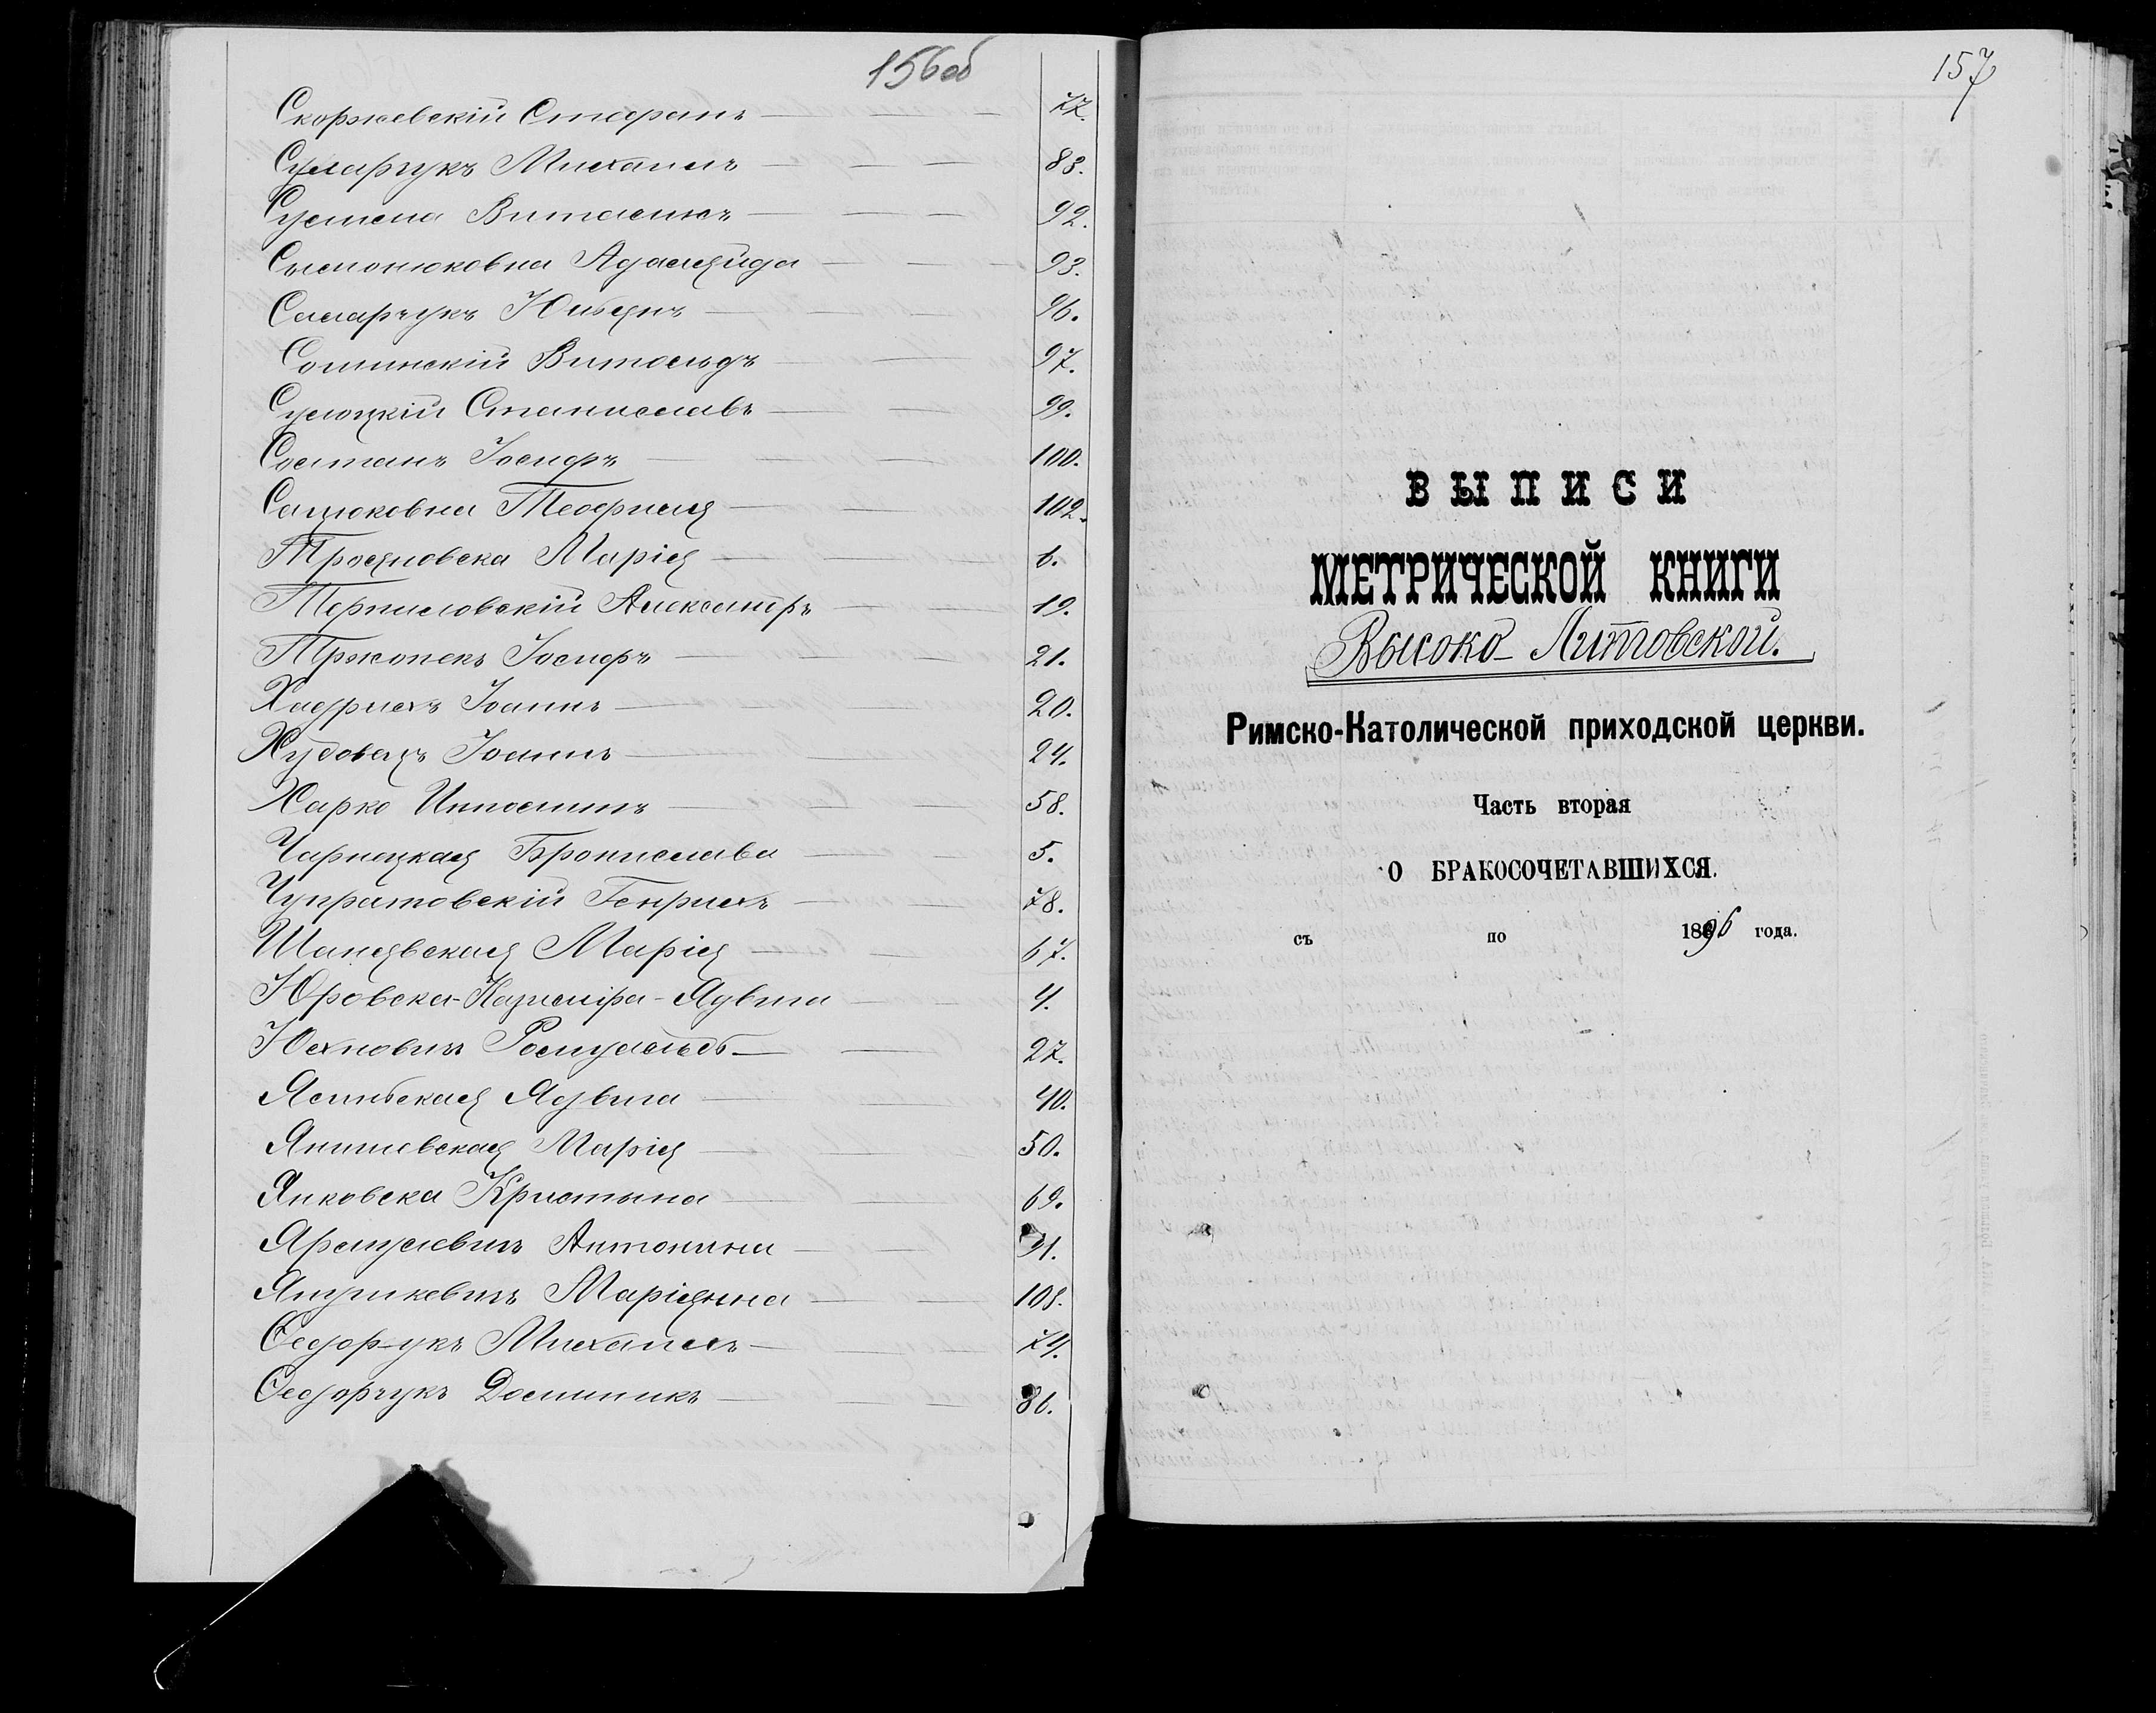 156об
Скоржевскій Стефанъ 77.
Сумарчукъ Михаилъ 83.
Витольдъ 92.
Сымонюковна Аделяйда 93.
Самарчукъ Юльянъ 96.
Сошинскій Витольдъ 97.
Станиславъ 99.
Солтанъ Іосифъ 100.
Сацюковна Теофиля 102.
Трояновска Марія 6.
Терпиловскій Александръ 19.
Іосифъ 21.
Іоаннъ 20.
Іоаннъ 24.
Харко Ипполитъ 58.
Чарнецкая Брониславa 5.
Чупратовскій Генрихъ 78.
Шанявская Марія 67.
Юровска-Казиміра-Ядвига 4.
Юхновичъ Ромуальдъ 27.
Ясинская Ядвига 40.
Янишевская Марія 50.
Янковска Кристына 69.
Антонина 91.
Маріянна 108.
Ѳедорчукъ Михаилъ 74.
Ѳедорчукъ Доминикъ 86.
157
ВЫПИСИ
МЕТРИЧЕСКОЙ КНИГИ
Высоко-Литовской.
Римско-Католической приходской церкви.
Часть вторая
О БРАКОСОЧЕТАВШИХСЯ.
съ по 1896 года.